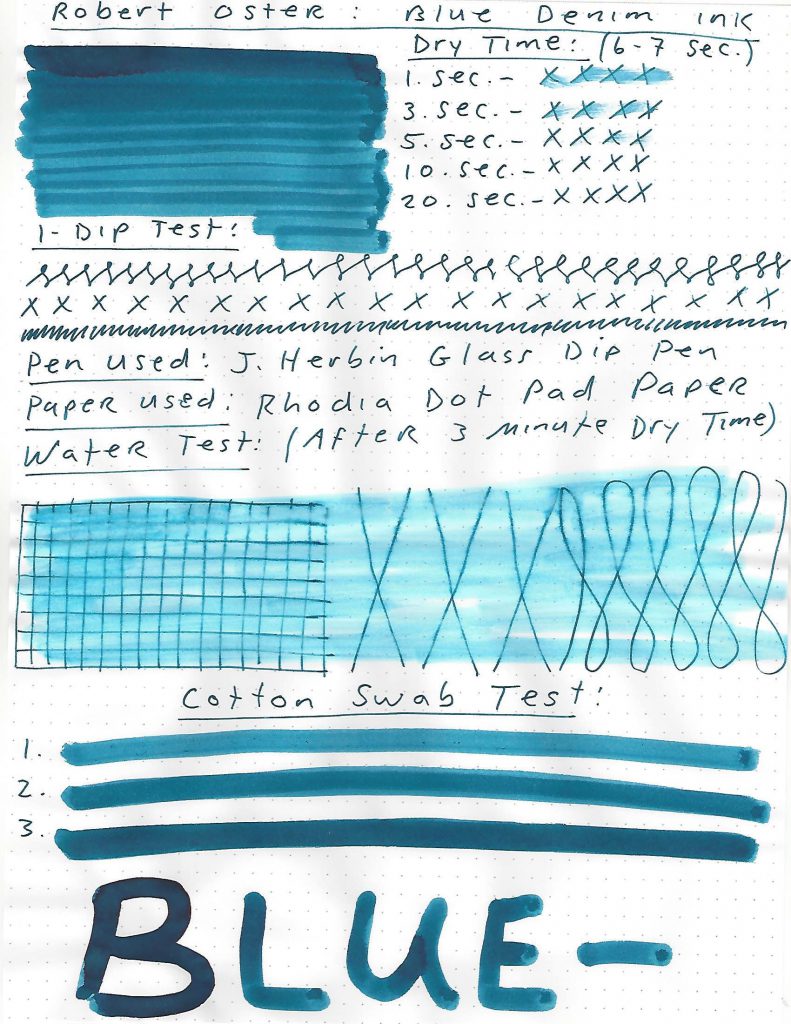 Robert Oster: Blue Denim Ink
Dry Time: (6-7 sec.)
1. sec. - x x x x
3. sec. - x x x x
5. sec. - x x x x
10. sec. - x x x x
20. sec. - x x x x
1-Dip Test:
x x x x x x x x x x x x x x x x x x x x
Pen used: J. Herbin Glass Dip Pen
Paper used: Rhodia Dot Pad Paper
Water Test: (After 3 minute Dry Time)
Cotton Swab Test:
1.
2.
3.
BLUE-